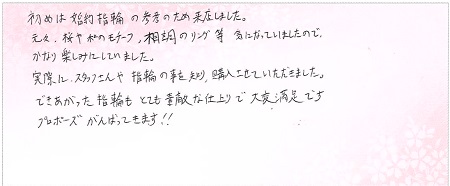 初めは婚約指輪の参考のため来店しました。
元々、桜や和のモチーフ、相調のリング等 気になっていましたので、
かなり楽しみにしていました。
実際に、スタッフさんや指輪の事を知り、購入させていただきました。
できあがった指輪もとても素敵な仕上りで大変満足です
プロポーズがんばってきます!!